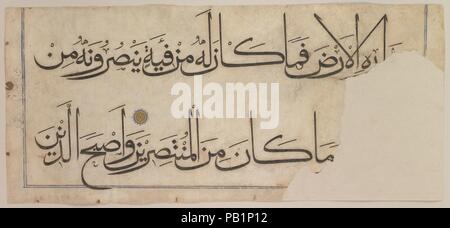 الْاَرْضَ فَمَا كَانَ لَهُ مِنْ فِيَةٍ يَنْصُرُونَهُ مِنْ
مَا كَانَ مِنَ الْمُنْتَصِرِينَ وَاَصْبَحَ الَّذِينَ
alamy
PB1P12